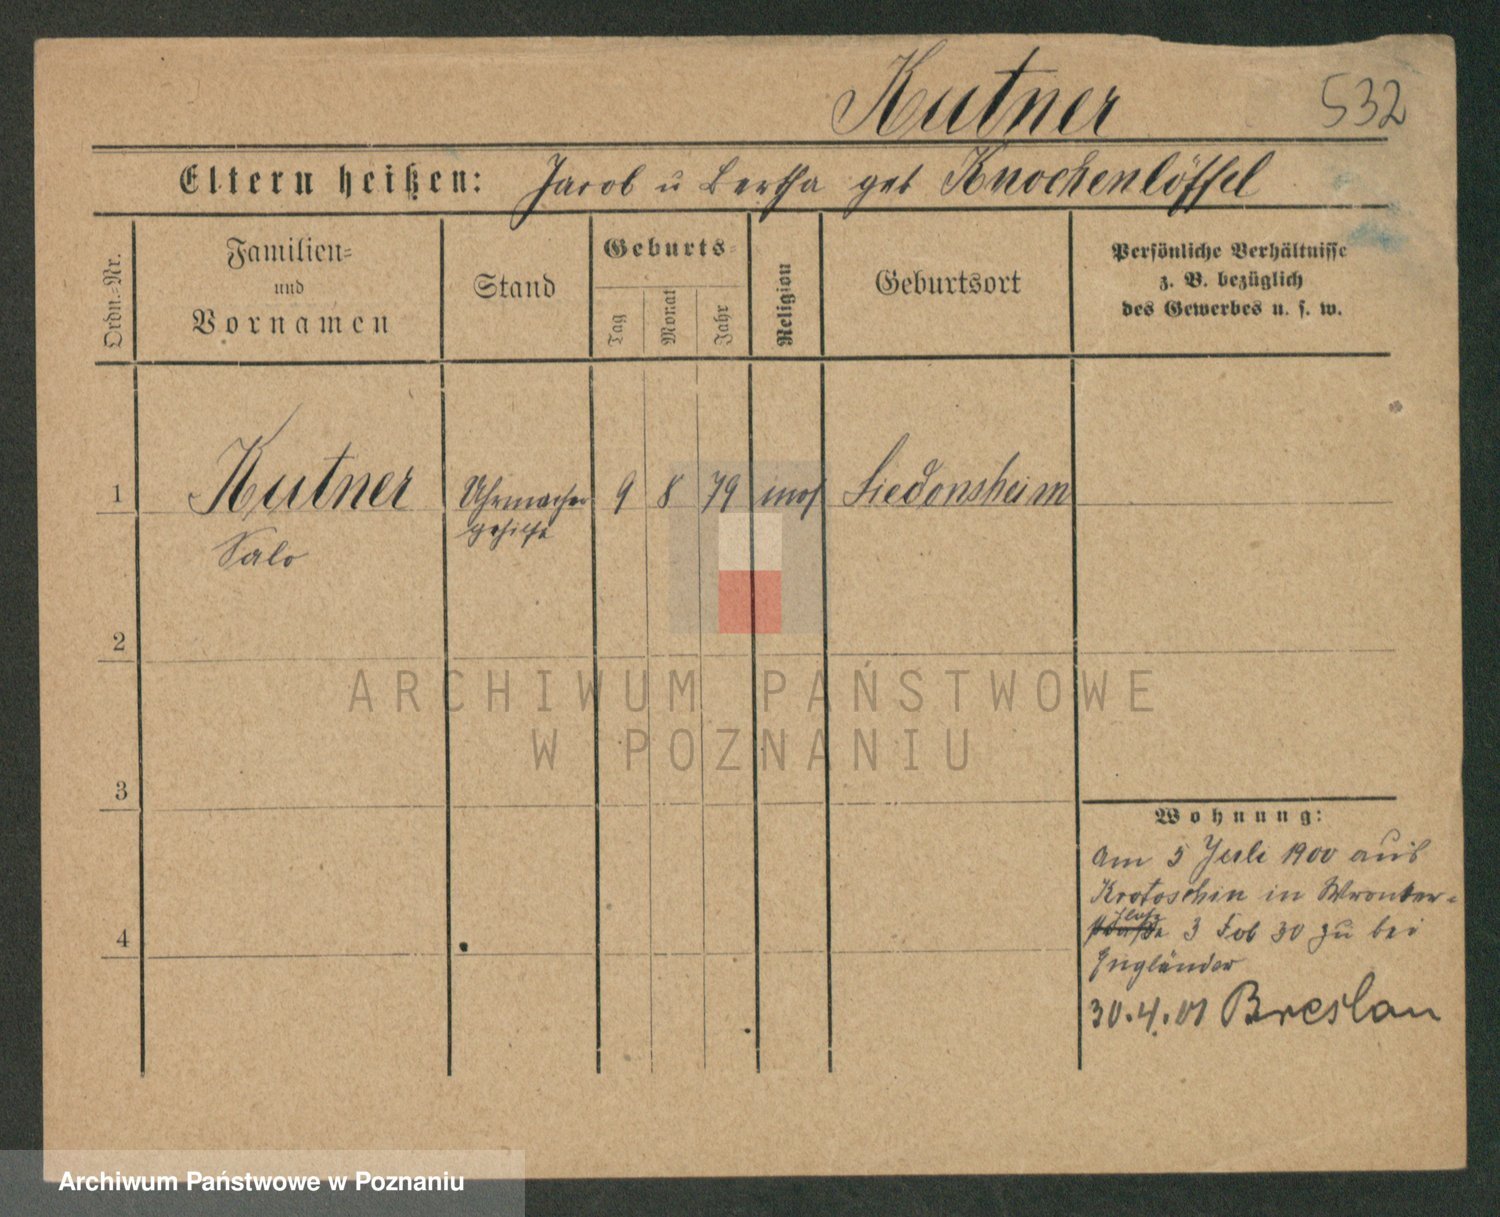 Kutner 532
Eltern heißen: Jacob u Bertha geb Knochenlöffel
Ordn.-Nr.
Familien-
und
Vornamen
Stand
Geburts-
Tag
Monat
Jahr
Religion
Geburtsort
Persönliche Verhältnisse
z. B. bezüglich
des Gewerbes u. s. w.
1 Kutner Uhrmacher 9 8 79 mos Siedonsheim
Salo gehilfe
2
3
4
Wohnung:
Am 5 Juli 1900 aus
Krotoschin in Wronker-
3 Fob 30 zu bei
Engländer
30.4.01 Breslau
ARCHIWUM PAŃSTWOWE
W POZNANIU
Archiwum Państwowe w Poznaniu